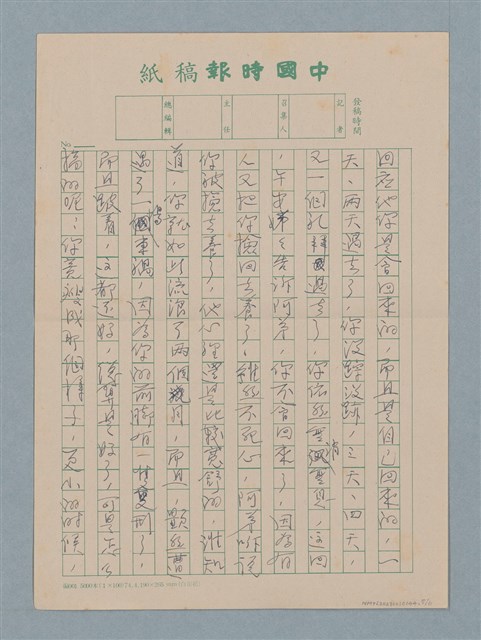 中國時報稿紙
發稿時間
記者
召集人
主任
總編輯
回應他你是會回來的，而且是自己回來的，一
天、兩天過去了，你沒蹤沒跡，三天、四天，
又一個禮拜過去了，你依然無消息，這回
，午安娣娣告訴阿弟，你不會回來了，因為有
人又把你撿回去養了，雖然不死心，阿弟聽說
你被撿去養了，他心裡還是比較寬舒的，誰知
道，你就如此流浪了兩個月，而且，顯然遭
遇了一場車禍，因為你的前腳有一隻變形了，
而且跛著，這都還好，總算是好了，可是怎么
搞的呢？你竟然變成那個樣子，更小的時候，